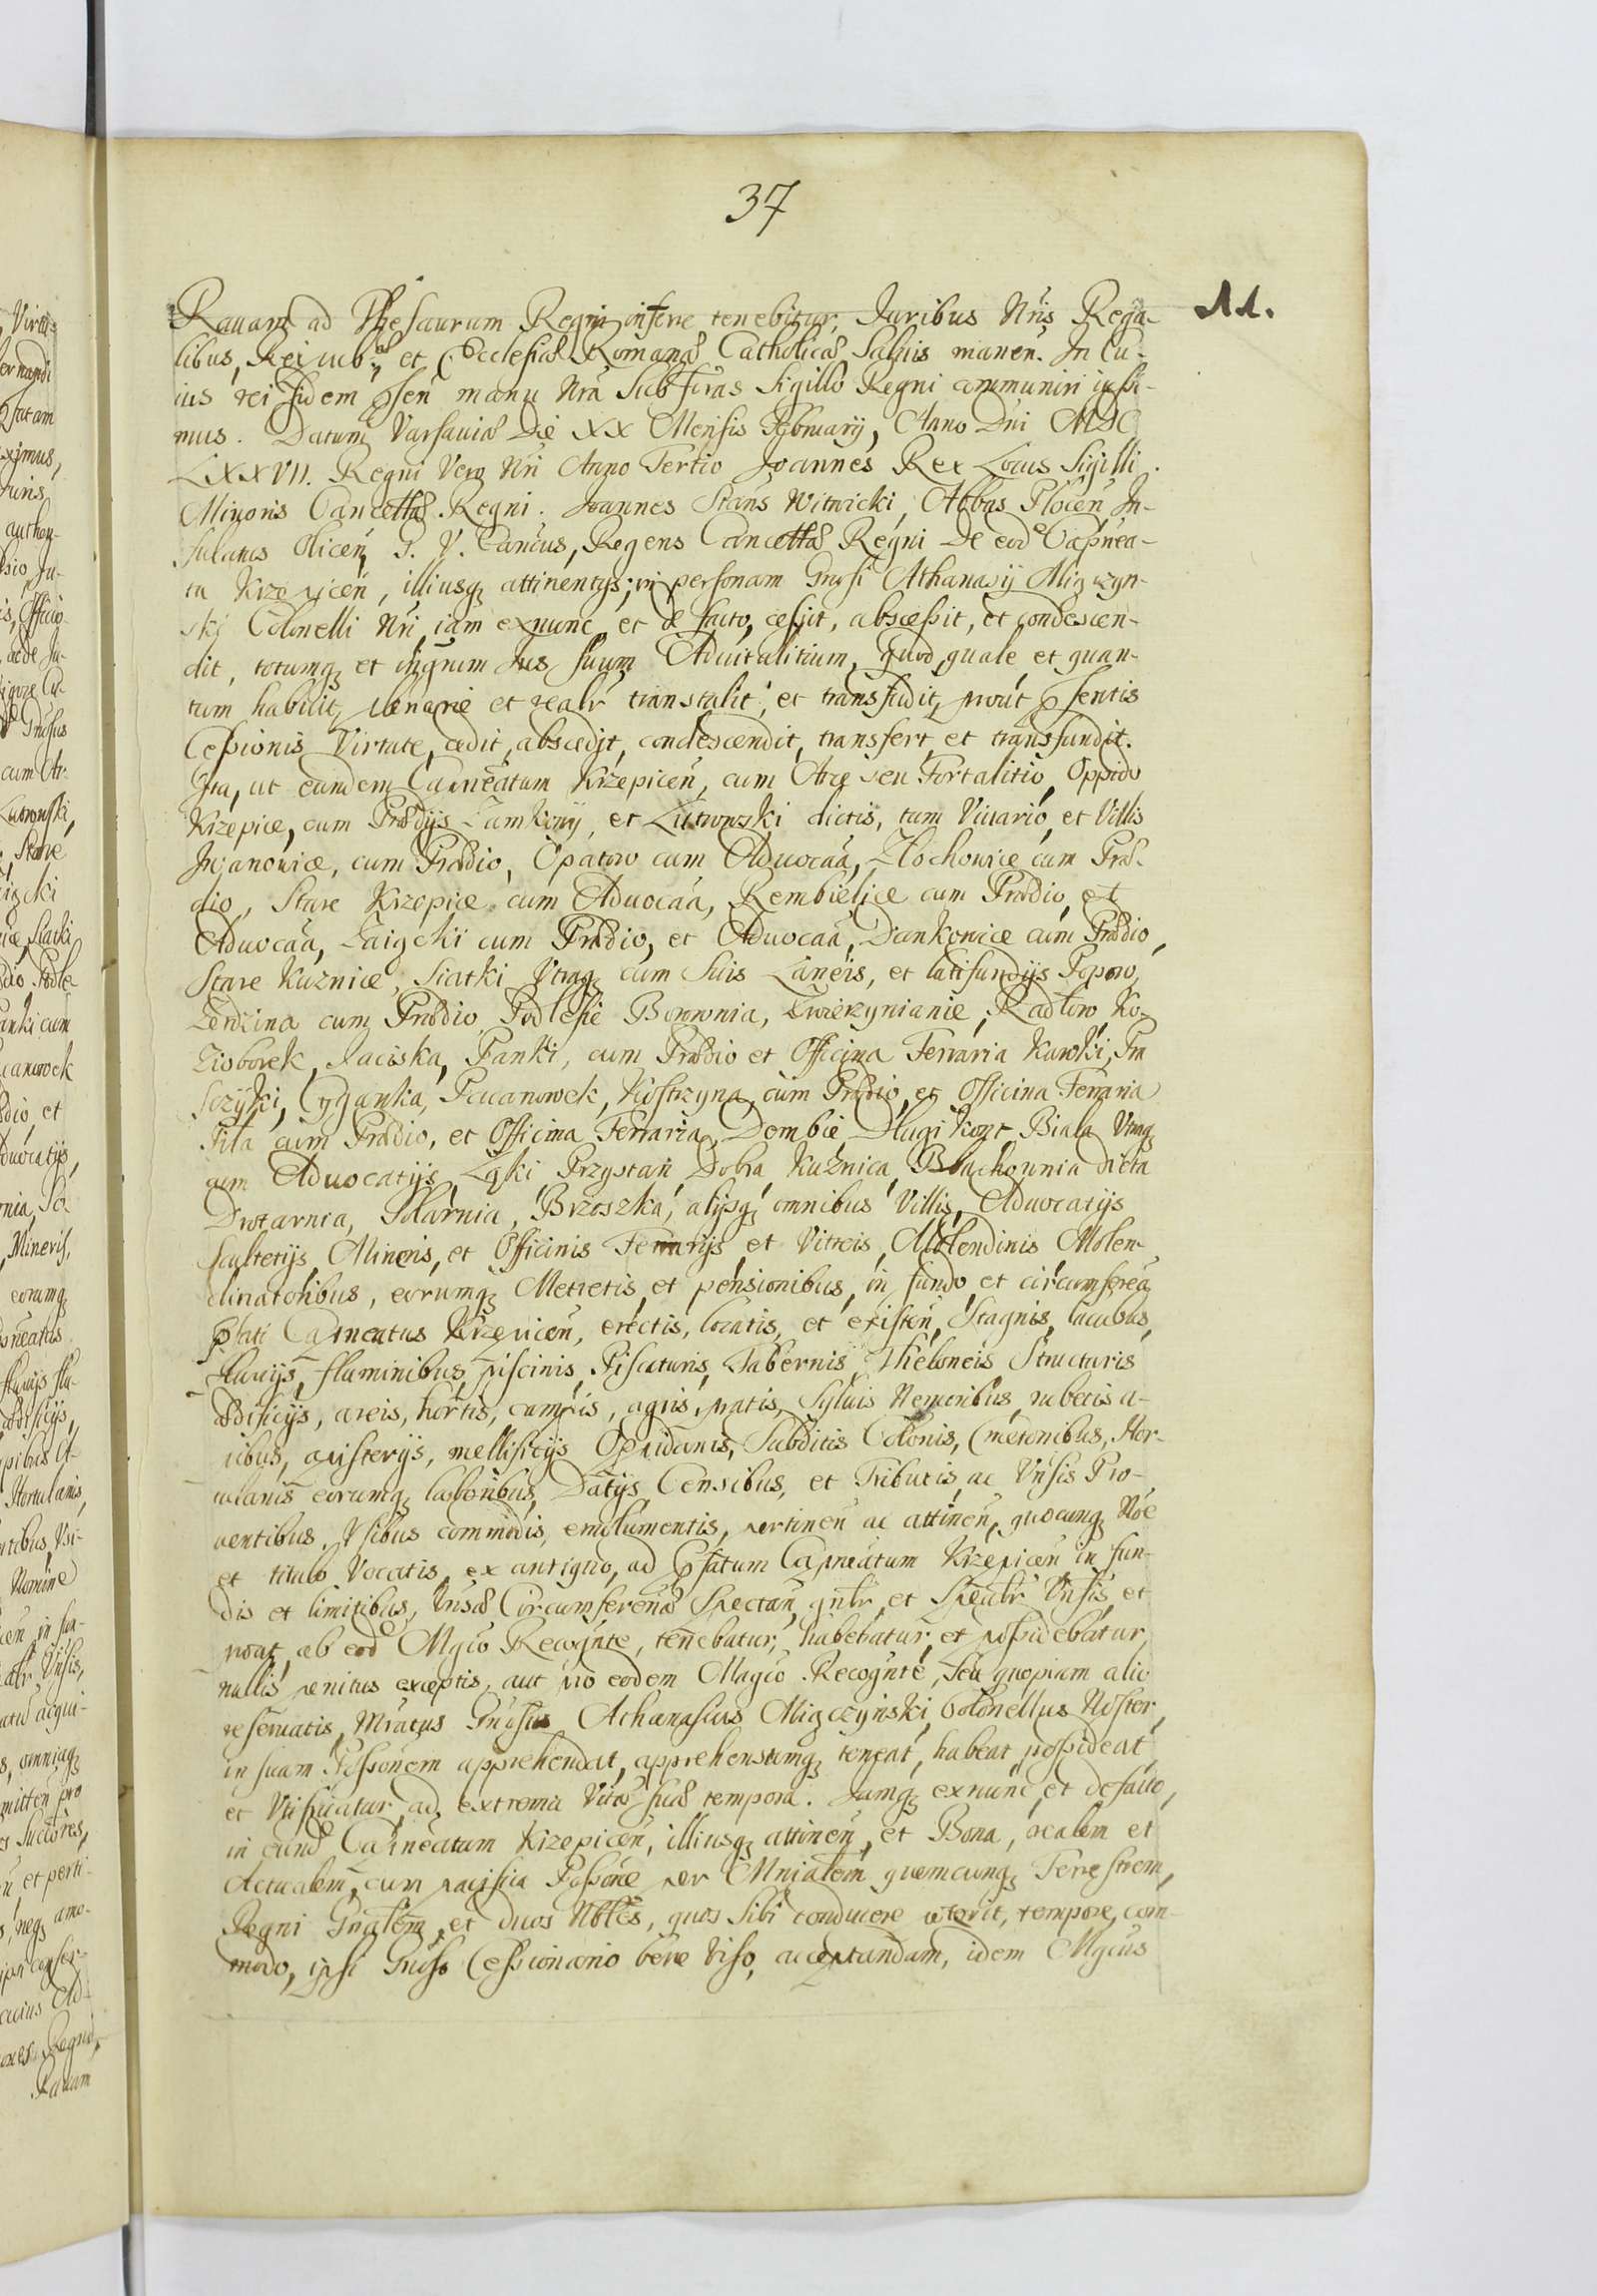 37
11.
Rauam ad Thesaurum Regni inferre tenebitur, Iuribus Nris Rega-
libus, Reipub: et Ecclesiæ Romanæ Catholicæ Saluis manen. In Cu-
ius rei fidem psen manu Nra Subscras Sigillo Regni communiri iussi-
mus. Datum Varsauiæ Die XX Mensis February, Anno Dni MDC
LXXVII. Regni Vero Nri Anno Tertio Joannes Rex Locus Sigilli
Minoris Cancellæ Regni. Joannes Stans Witwicki, Abbas Plocen In-
fulatus Olicen P. V. Cancus, Regens Cancellæ Regni De eod Capnea-
tu Krzepicen, illiusq attinentys; in personam Grosi Athanasij Miączyn-
skj Colonelli Nri iam exnunc et de facto, cessit, abscessit, et condescen-
dit, totumq et ingrum Ius suum Aduitalitium, quod, quale et quan-
tum habuit, plenarie et realr transtulit, et transfudit, prout psentis
Cessionis Virtute, cedit, abscedit, condescendit, transfert et transfundit.
Ita, ut eundem Capneatum Krzepicen, cum Arce seu Fortalitio, Oppido
Krzepice, cum Prædijs Zamkowy, et Lutrowski dictis, tum Viuario, et Villis
Iwanowice, cum Prædio, Opatow cum Aduocaa, Złochowice cum Præ-
dio, Stare Krzepice cum Aduocaa, Rembielice cum Prædio, et
Aduocaa, Zaiączki cum Prædio, et Aduocaa, Dankowice cum Prædio,
Stare Kuznice, Siatki Vtraq cum Suis Laneis, et latifundijs Popow,
Zerdzina cum Prædio Podlesie Borownia, Zwierzynianie, Radłow Ko-
ziobrek, Jaciska, Panki, cum Prædio et Officina Ferraria Kawki, Pra
szczyki, Cyganka, Pacanowek, Kostrzyna, cum Prædio, et Officina Ferraria
Piła cum Prædio, et Officina Ferraria, Dembie, Dlugi Kont Biała Vtraq
cum Aduocatijs Łąki Przystań, Dobra Kuźnica, Blachownia dicta
Drotarnia, Solarnia, Brzoszka, alijsq omnibus Villis, Aduocatijs
Scultetijs, Mineris, et Officinis Ferrarijs et Vitreis, Molendinis Molen-
dinatoribus, eorumq Metretis et pensionibus, in fundo et circumferea
pfati Capneatus Krzepicen, erectis, locatis, et existen, Stagnis, lacubus,
fluuijs, fluminibus, piscinis, Piscaturis, Tabernis Theloneis Structuris
ædificijs, areis, hortis, campis, agris, pratis, Syluis Nemoribus, rubetis a-
uibus, quisterijs, mellificijs Oppidanis, Subditis Colonis, Cmetonibus, Hor-
tulanis eorumq laboribus, Datijs Censibus, et Tributis, ac Vnsis Pro-
uentibus, Vsibus commodis, emolumentis, pertinen ac attinen, quocunq Noe
et titulo Vocatis, ex antiquo, ad pfatum Capneatum Krzepicen in fun-
dis et limitibus, Vnsæ Circumferenæ Spectan, gnlr, et Spealr Vnsis, et
prout ab eod Mgco Recognte, tenebatur, habebatur, et possidebatur
nullis penitus exceptis, aut pro eodem Magco Recognte, seu quopiam alio
reseruatis, Mratus Grosus Athanasius Miączyński, Colonellus Noster,
in suam Possonem apprehendat, apprehensamq teneat, habeat possideat
et Vtifruatur, ad extrema Vitæ suæ tempora. Iamq exnunc et defacto,
in eund Capneatum Krzepicen, illiusq attinen, et Bona, realem et
Actualem, cum pacifica Possone per Mnialem quemcunq Terrestrem,
Regni Gnalem, et duos Nobles, quos Sibi conducere voluerit, tempore com-
modo, ipsi Groso Cessionario bene Viso, acceptandam, idem Mgcus